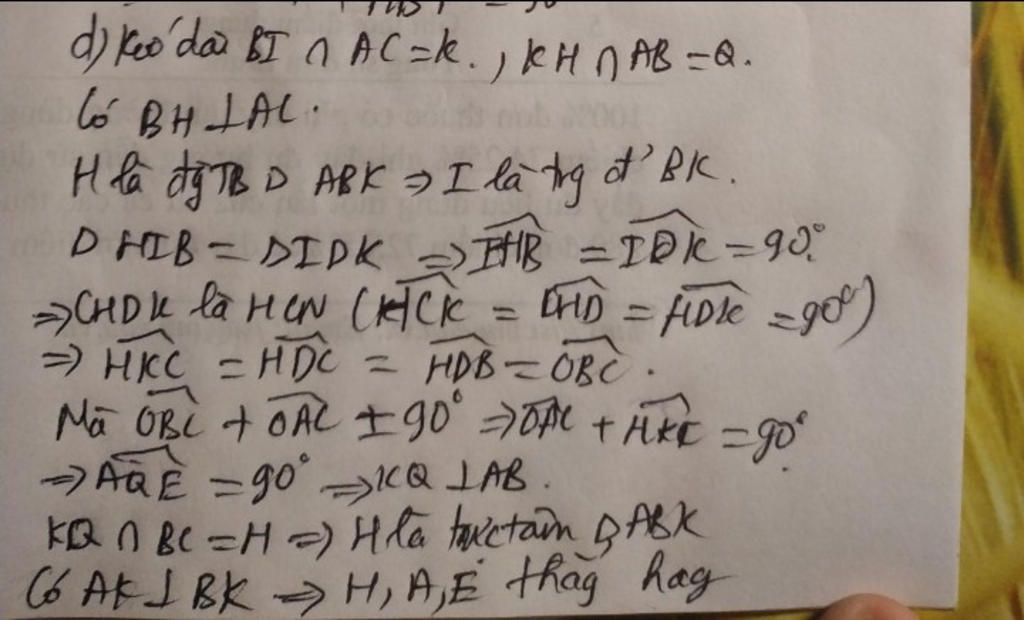 d) Kéo dài BI ∩ AC = K., KH ∩ AB = Q.
Có BH ⊥ AC.
H là đg TB Δ ABK ⇒ I là trg đ' BK.
Δ HIB = Δ IDK ⇒ IHB = IDK = 90°.
⇒ CHDK là HCN (HCK = CHD = HDK = 90°)
⇒ HKC = HDC = HDB = OBC.
Mà OBC + OAC = 90° ⇒ OAC + HKC = 90°.
⇒ AQE = 90° ⇒ KQ ⊥ AB.
KQ ∩ BC = H ⇒ H là trực tâm Δ ABK
Có AK ⊥ BK ⇒ H, A, E thẳng hàng